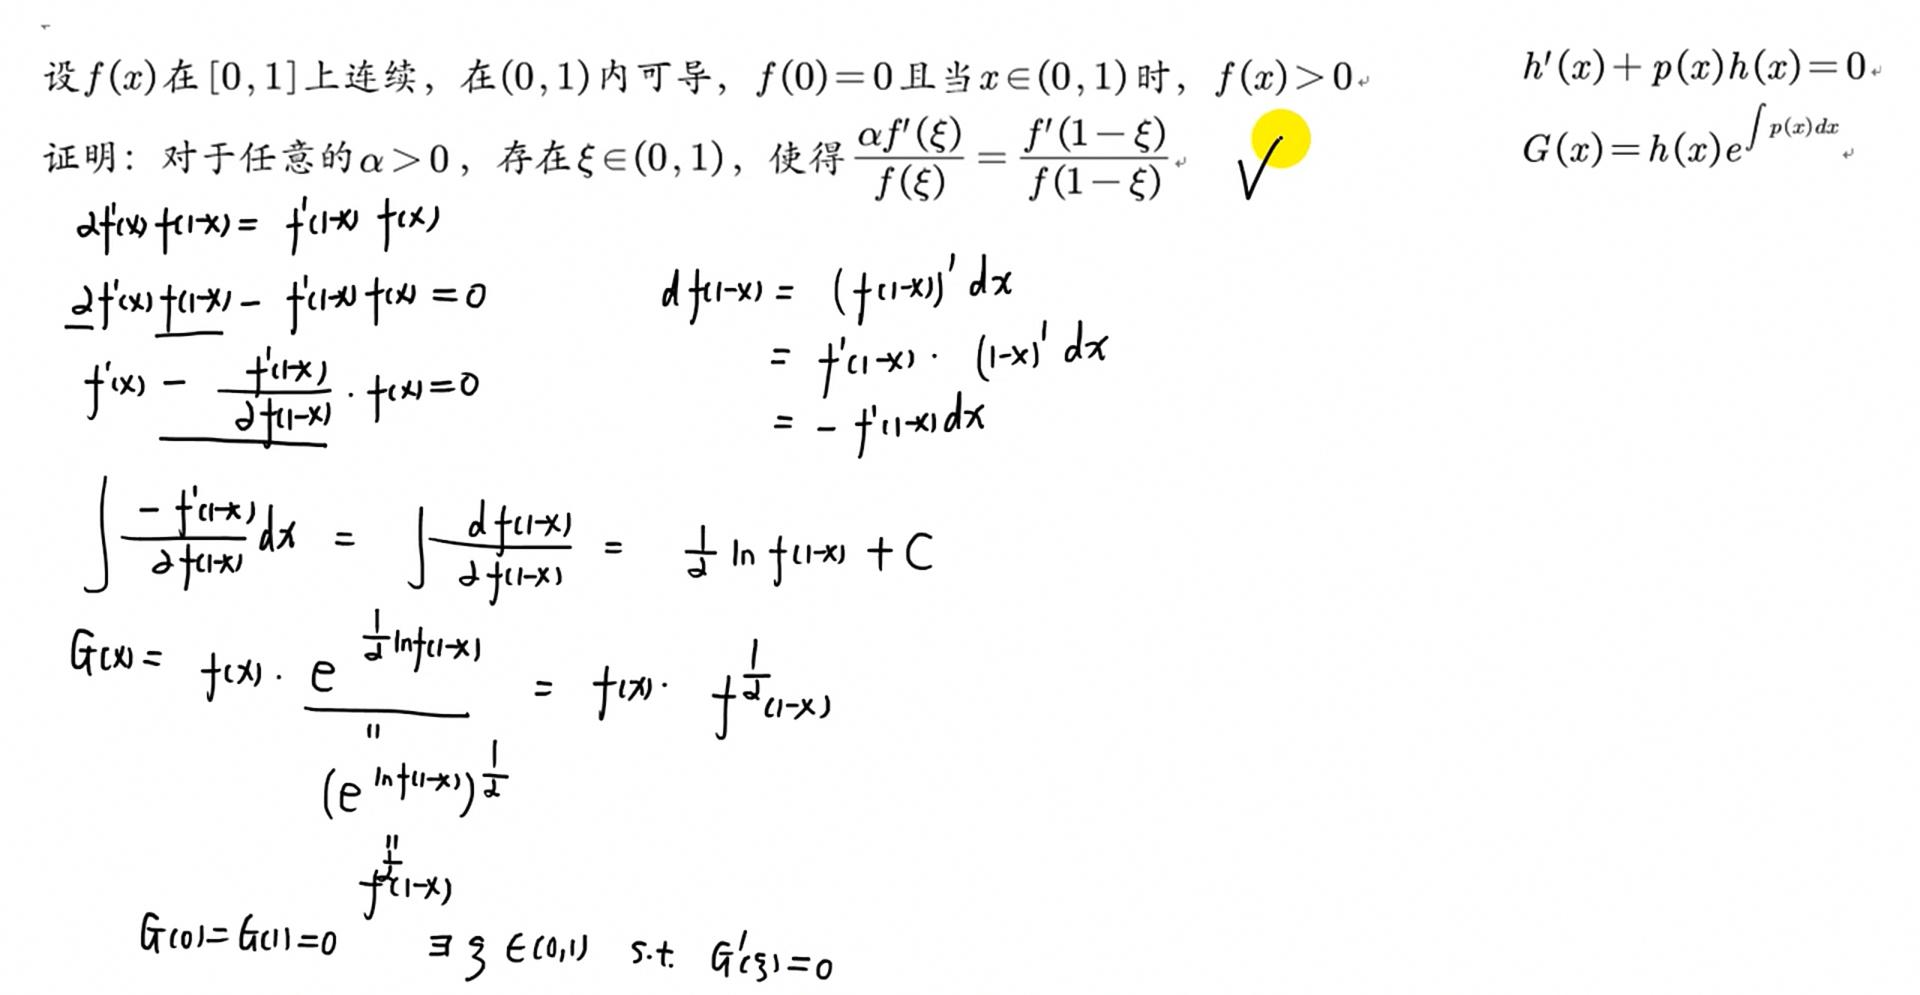 设f(x)在[0,1]上连续，在(0,1)内可导，f(0)=0且当x∈(0,1)时，f(x)>0
证明：对于任意的α>0，存在ξ∈(0,1)，使得 αf′(ξ)/f(ξ) = f′(1−ξ)/f(1−ξ)
h′(x)+p(x)h(x)=0
G(x)=h(x)e^{∫p(x)dx}
αf′(x)f(1-x)= f′(1-x) f(x)
αf′(x)f(1-x) - f′(1-x)f(x) = 0
f′(x) - f′(1-x)/αf(1-x) · f(x)=0
df(1-x) = (f(1-x))′dx
= f′(1-x) · (1-x)′ dx
= - f′(1-x)dx
∫ -f′(1-x)/αf(1-x) dx = ∫ df(1-x)/αf(1-x) = 1/α ln f(1-x) + C
G(x)= f(x) · e^{1/α ln f(1-x)} = f(x) · f^{1/α}(1-x)
"
(e^{ln f(1-x)})^{1/α}
"
f^{1/α}(1-x)
G(0)=G(1)=0 ∃ ξ ∈(0,1) s.t. G′(ξ)=0